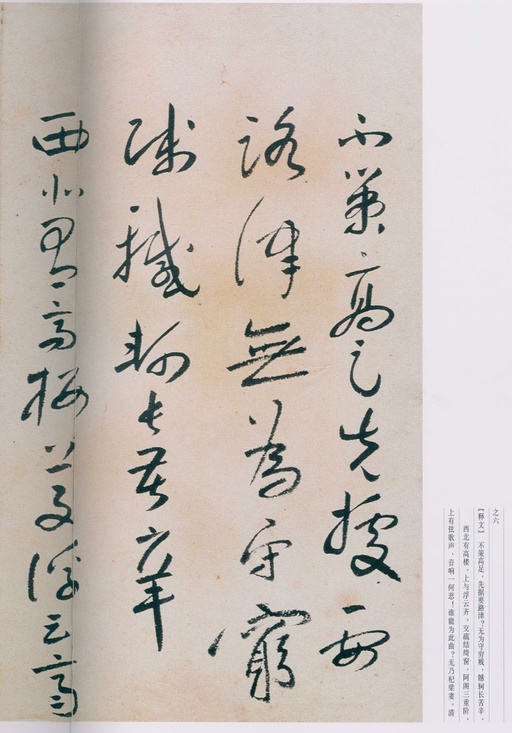 不策高足先據要
路津無為守窮
賤轗軻長苦辛
西北有高樓上與浮雲齊
之六
【释文】 不策高足,先据要路津?无为守穷贱,轗轲长苦辛。
西北有高楼,上与浮云齐,交疏结绮窗,阿阁三重阶,
上有弦歌声,音响一何悲!谁能为此曲?无乃杞梁妻,清